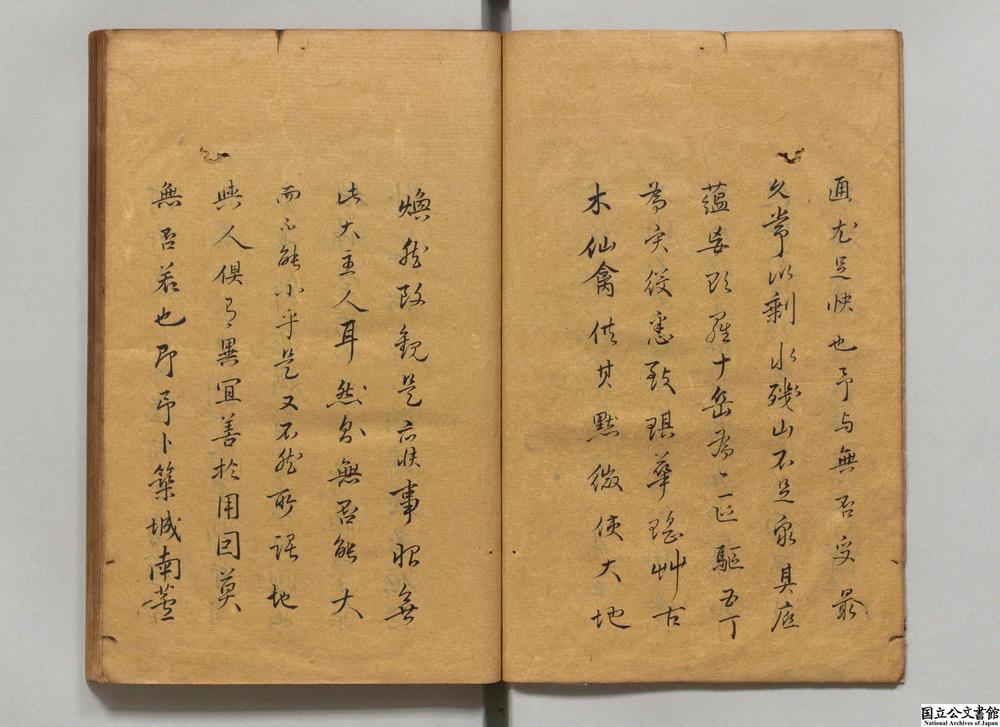 通尤足快也予与無否交最
久常以剩水殘山不足窮其底
蘊妄欲羅十岳為一區驅五丁
為衆役悉致琪華瑤艸古
木仙禽供其點綴使大地
煥然改觀是亦快事恨無
此大主人耳然則無否能大
而不能小乎是又不然所謂地
與人俱有異宜善於用因莫
無否若也即予卜築城南蘆
国立公文書館
National Archives of Japan